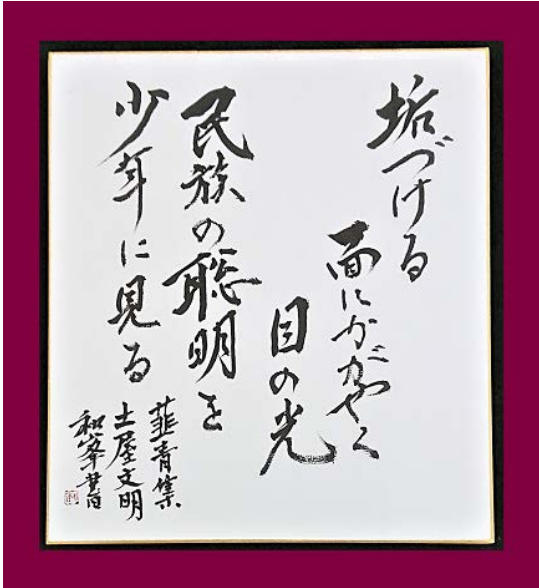 垢づける
面にかがやく
目の光
民族の聡明を
少年に見る
韮青集
土屋文明
和峯書